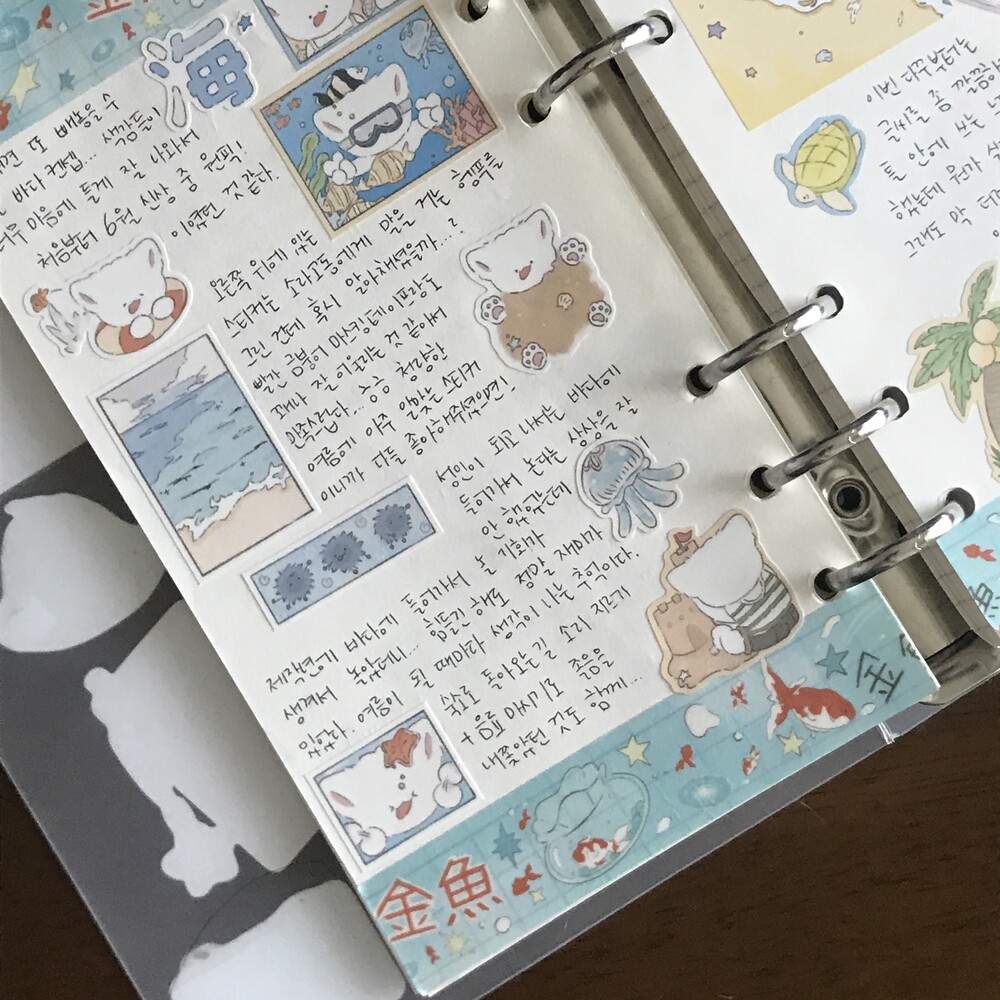 金魚
海
또 배용을 수
바다 컨셉... 색감들이
마음에 들게 잘 나와서
처음부터 6월 신상 중 원픽!
이였던 것 같다.
오른쪽 위에 있는 행푸를
스티커는 소라고둥에게 말을 거는
그린 건데 혹시 알아챘을까...?
빨간 금붕어 마스킹테이프랑도
꽤나 잘 어울리는 것 같아서
만족스럽다... 승승 청량한
여름에 아주 알맞는 스티커
이니까 다들 좋아해주셨으면!
성인이 되고 나서는 바다에
들어가서 논다는 상상을 잘
안 했었는데
재작년에 바다에 들어가서 놀 기회가
생겨서 놀았는데... 힘들긴 해도 정말 재미가
있었다.. 여름이 될 때마다 생각이 나는 추억이다.
숙소로 돌아오는 길 소리 지르기
+ 음료 마시기로 졸음을
내쫓았던 것도 함께...
金魚
金
이번 다꾸부터는
글씨를 좀 깔끔하
틀 안에 쓰는
했는데 뭔가
그래도 막